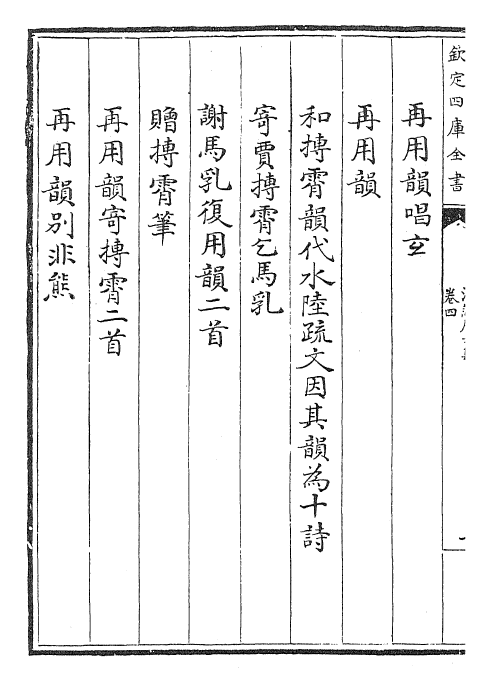 欽定四庫全書
卷四
再用韻唱玄
再用韻
和摶霄韻代水陸疏文因其韻為十詩
寄賈摶霄乞馬乳
謝馬乳復用韻二首
贈摶霄筆
再用韻寄摶霄二首
再用韻別非熊